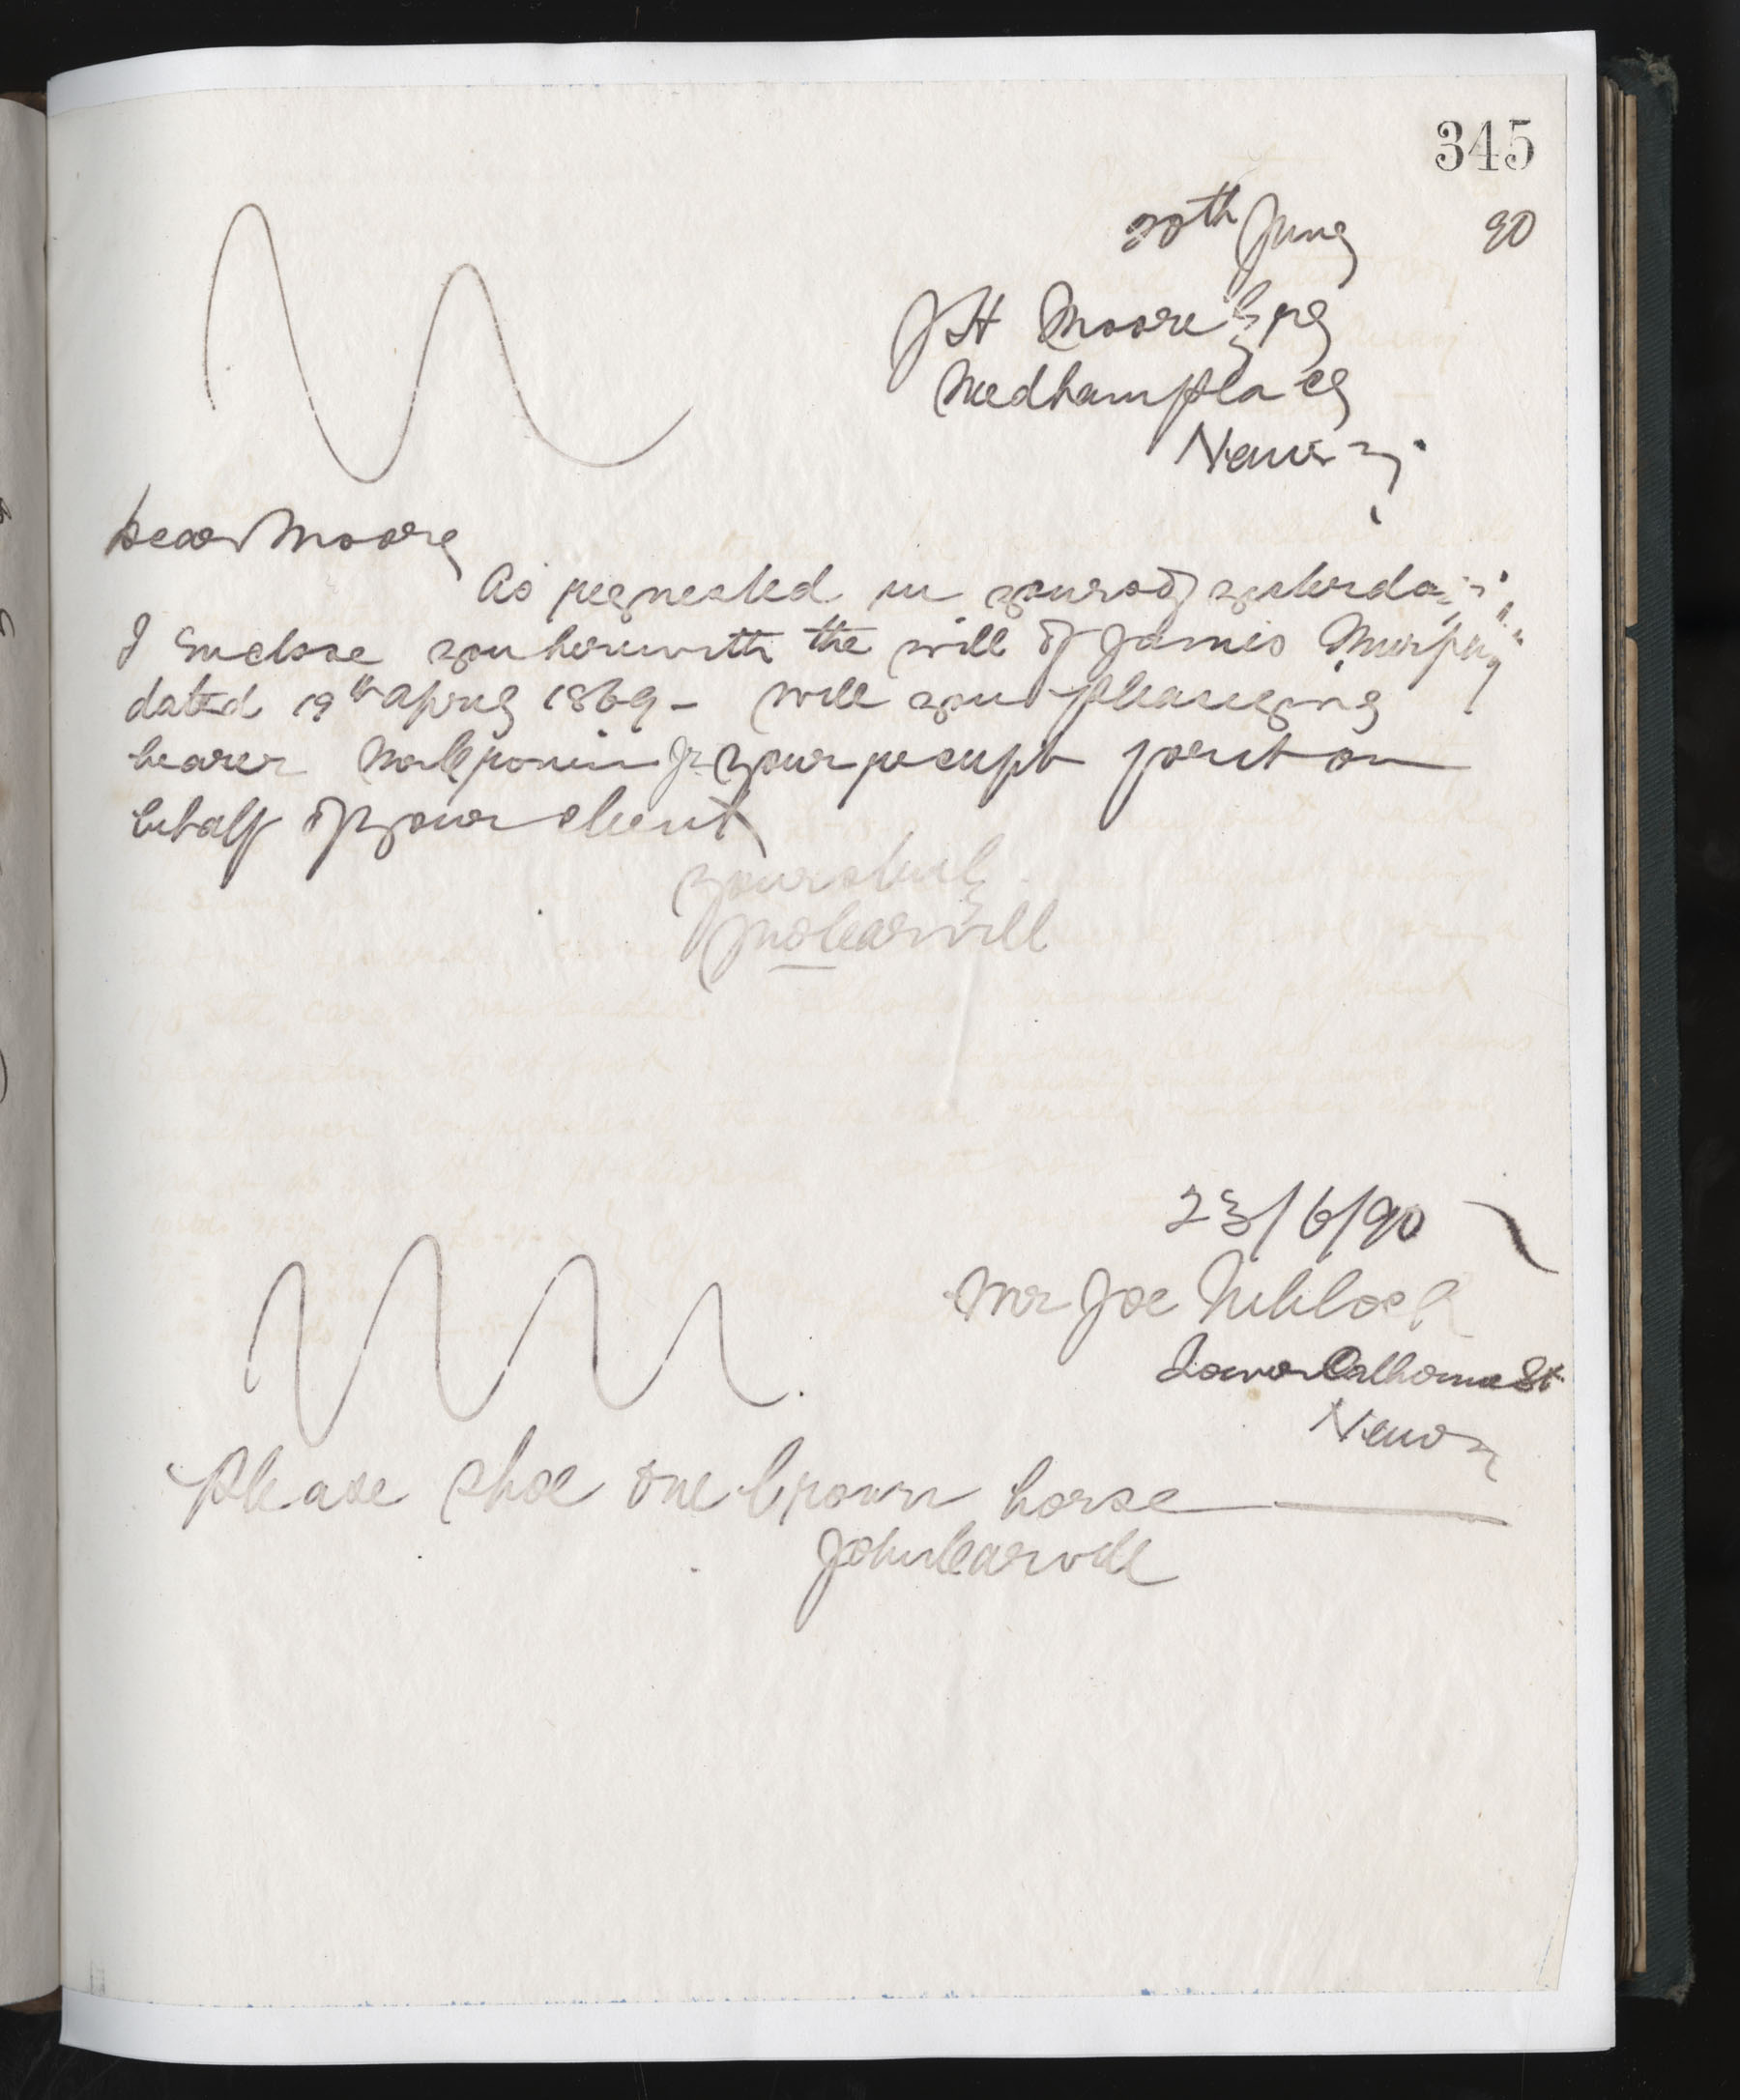 345
20th June 90
J H Moore Esq
Needham place
Newry
Dear Moore
As requested in yours of yesterday
I Enclose you herewith the will of James Murphy
dated 19th April 1869 - Will you please give
bearer your receipt for it on
behalf of your client
Yours truly
Jno Carvill
23/6/90
Mr Joe Niblock
Lower Catherine St
Newry
Please shoe one brown horse
John Carvill